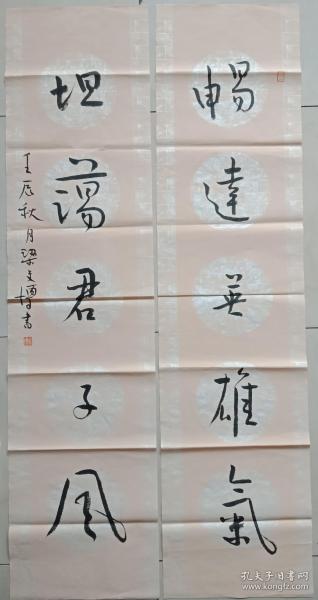 暢達英雄氣
坦蕩君子風
壬辰秋月梁文博書
孔夫子旧书网
www.kongfz.com